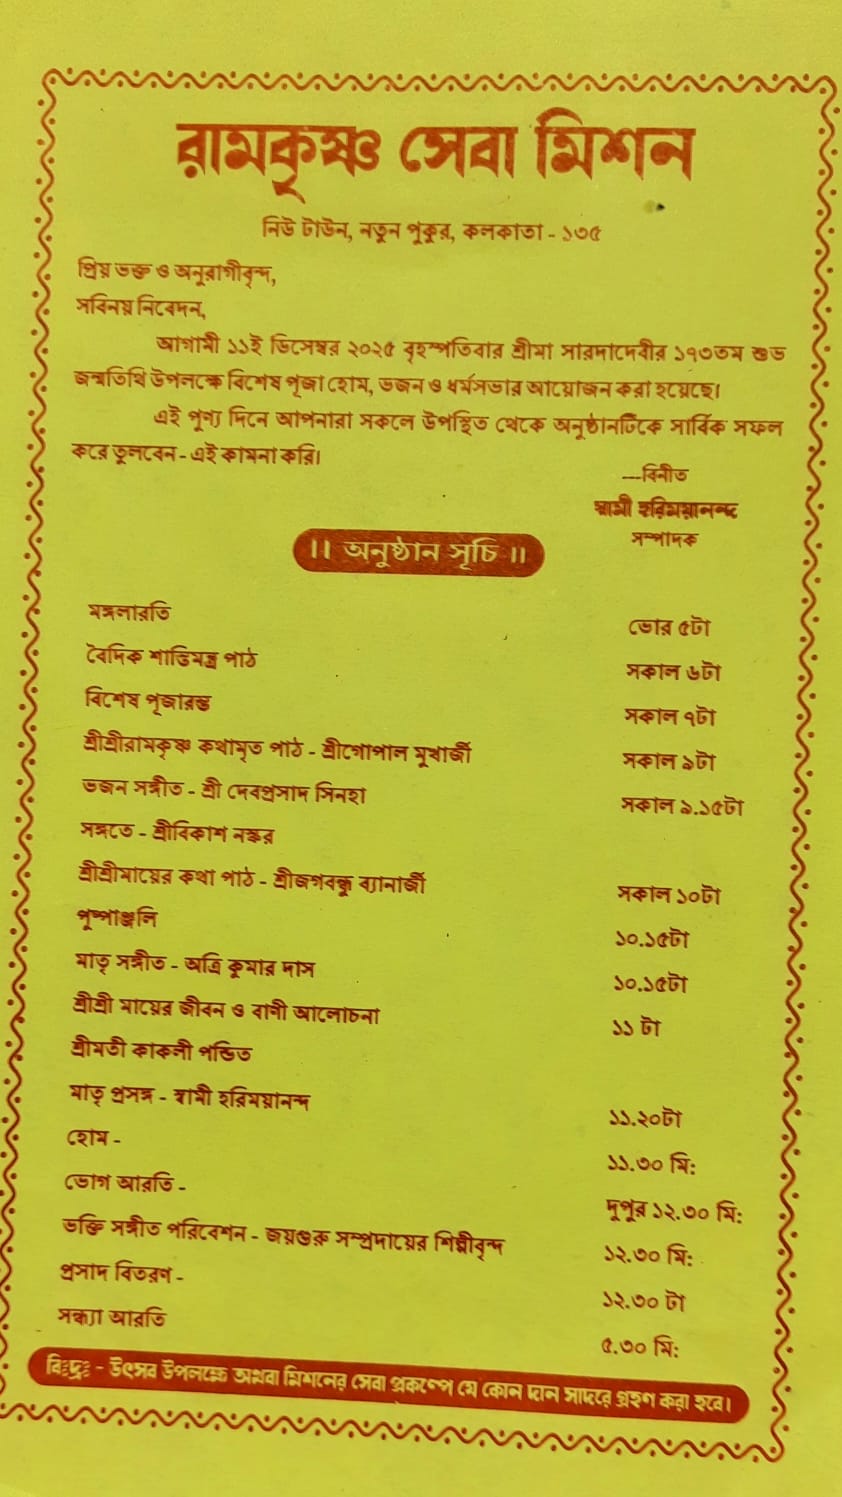 রামকৃষ্ণ সেবা মিশন
নিউ টাউন, নতুন পুকুর, কলকাতা - ১৩৫
প্রিয় ভক্ত ও অনুরাগীবৃন্দ,
সবিনয় নিবেদন,
আগামী ১১ই ডিসেম্বর ২০২৫ বৃহস্পতিবার শ্রীমা সারদাদেবীর ১৭৩তম শুভ
জন্মতিথি উপলক্ষে বিশেষ পূজা হোম, ভজন ও ধর্মসভার আয়োজন করা হয়েছে।
এই পূণ্য দিনে আপনারা সকলে উপস্থিত থেকে অনুষ্ঠানটিকে সার্বিক সফল
করে তুলবেন - এই কামনা করি।
---বিনীত
স্বামী হরিময়ানন্দ
সম্পাদক
।। অনুষ্ঠান সূচি ।।
মঙ্গলারতি ভোর ৫টা
বৈদিক শান্তিমন্ত্র পাঠ সকাল ৬টা
বিশেষ পূজারম্ভ সকাল ৭টা
শ্রীশ্রীরামকৃষ্ণ কথামৃত পাঠ - শ্রীগোপাল মুখার্জী সকাল ৯টা
ভজন সঙ্গীত - শ্রী দেবপ্রসাদ সিনহা সকাল ৯.১৫টা
সঙ্গতে - শ্রীবিকাশ নস্কর
শ্রীশ্রীমায়ের কথা পাঠ - শ্রীজগবন্ধু ব্যানার্জী সকাল ১০টা
পুষ্পাঞ্জলি ১০.১৫টা
মাতৃ সঙ্গীত - অত্রি কুমার দাস ১০.১৫টা
শ্রীশ্রী মায়ের জীবন ও বাণী আলোচনা ১১ টা
শ্রীমতী কাকলী পন্ডিত
মাতৃ প্রসঙ্গ - স্বামী হরিময়ানন্দ ১১.২০টা
হোম - ১১.৩০ মি:
ভোগ আরতি - দুপুর ১২.৩০ মি:
ভক্তি সঙ্গীত পরিবেশন - জয়গুরু সম্প্রদায়ের শিল্পীবৃন্দ ১২.৩০ মি:
প্রসাদ বিতরণ - ১২.৩০ টা
সন্ধ্যা আরতি ৫.৩০ মি:
বিঃদ্রঃ - উৎসব উপলক্ষে অথবা মিশনের সেবা প্রকল্পে যে কোন দান সাদরে গ্রহণ করা হবে।